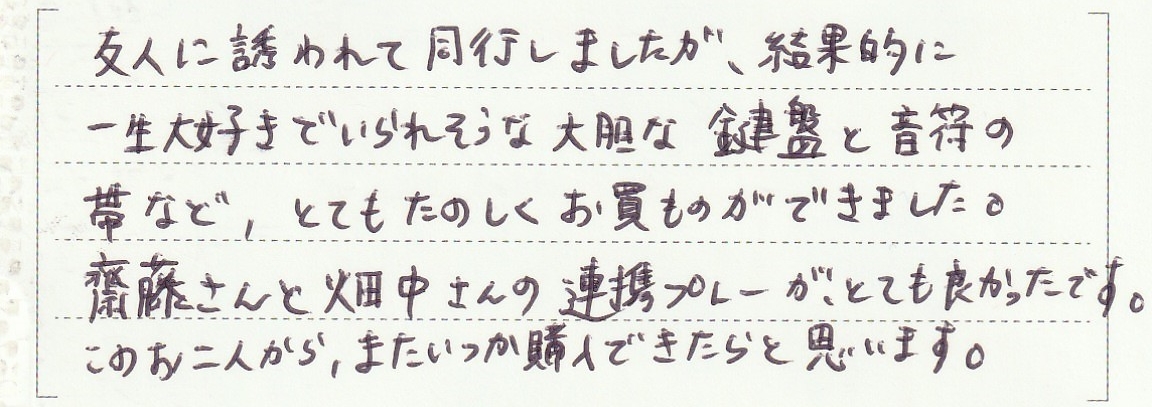 友人に誘われて同行しましたが、結果的に
一生大好きでいられそうな大胆な鍵盤と音符の
帯など, とてもたのしくお買ものができました。
齋藤さんと畑中さんの連携プレーが、とても良かったです。
このお二人から, またいつか購入できたらと思います。